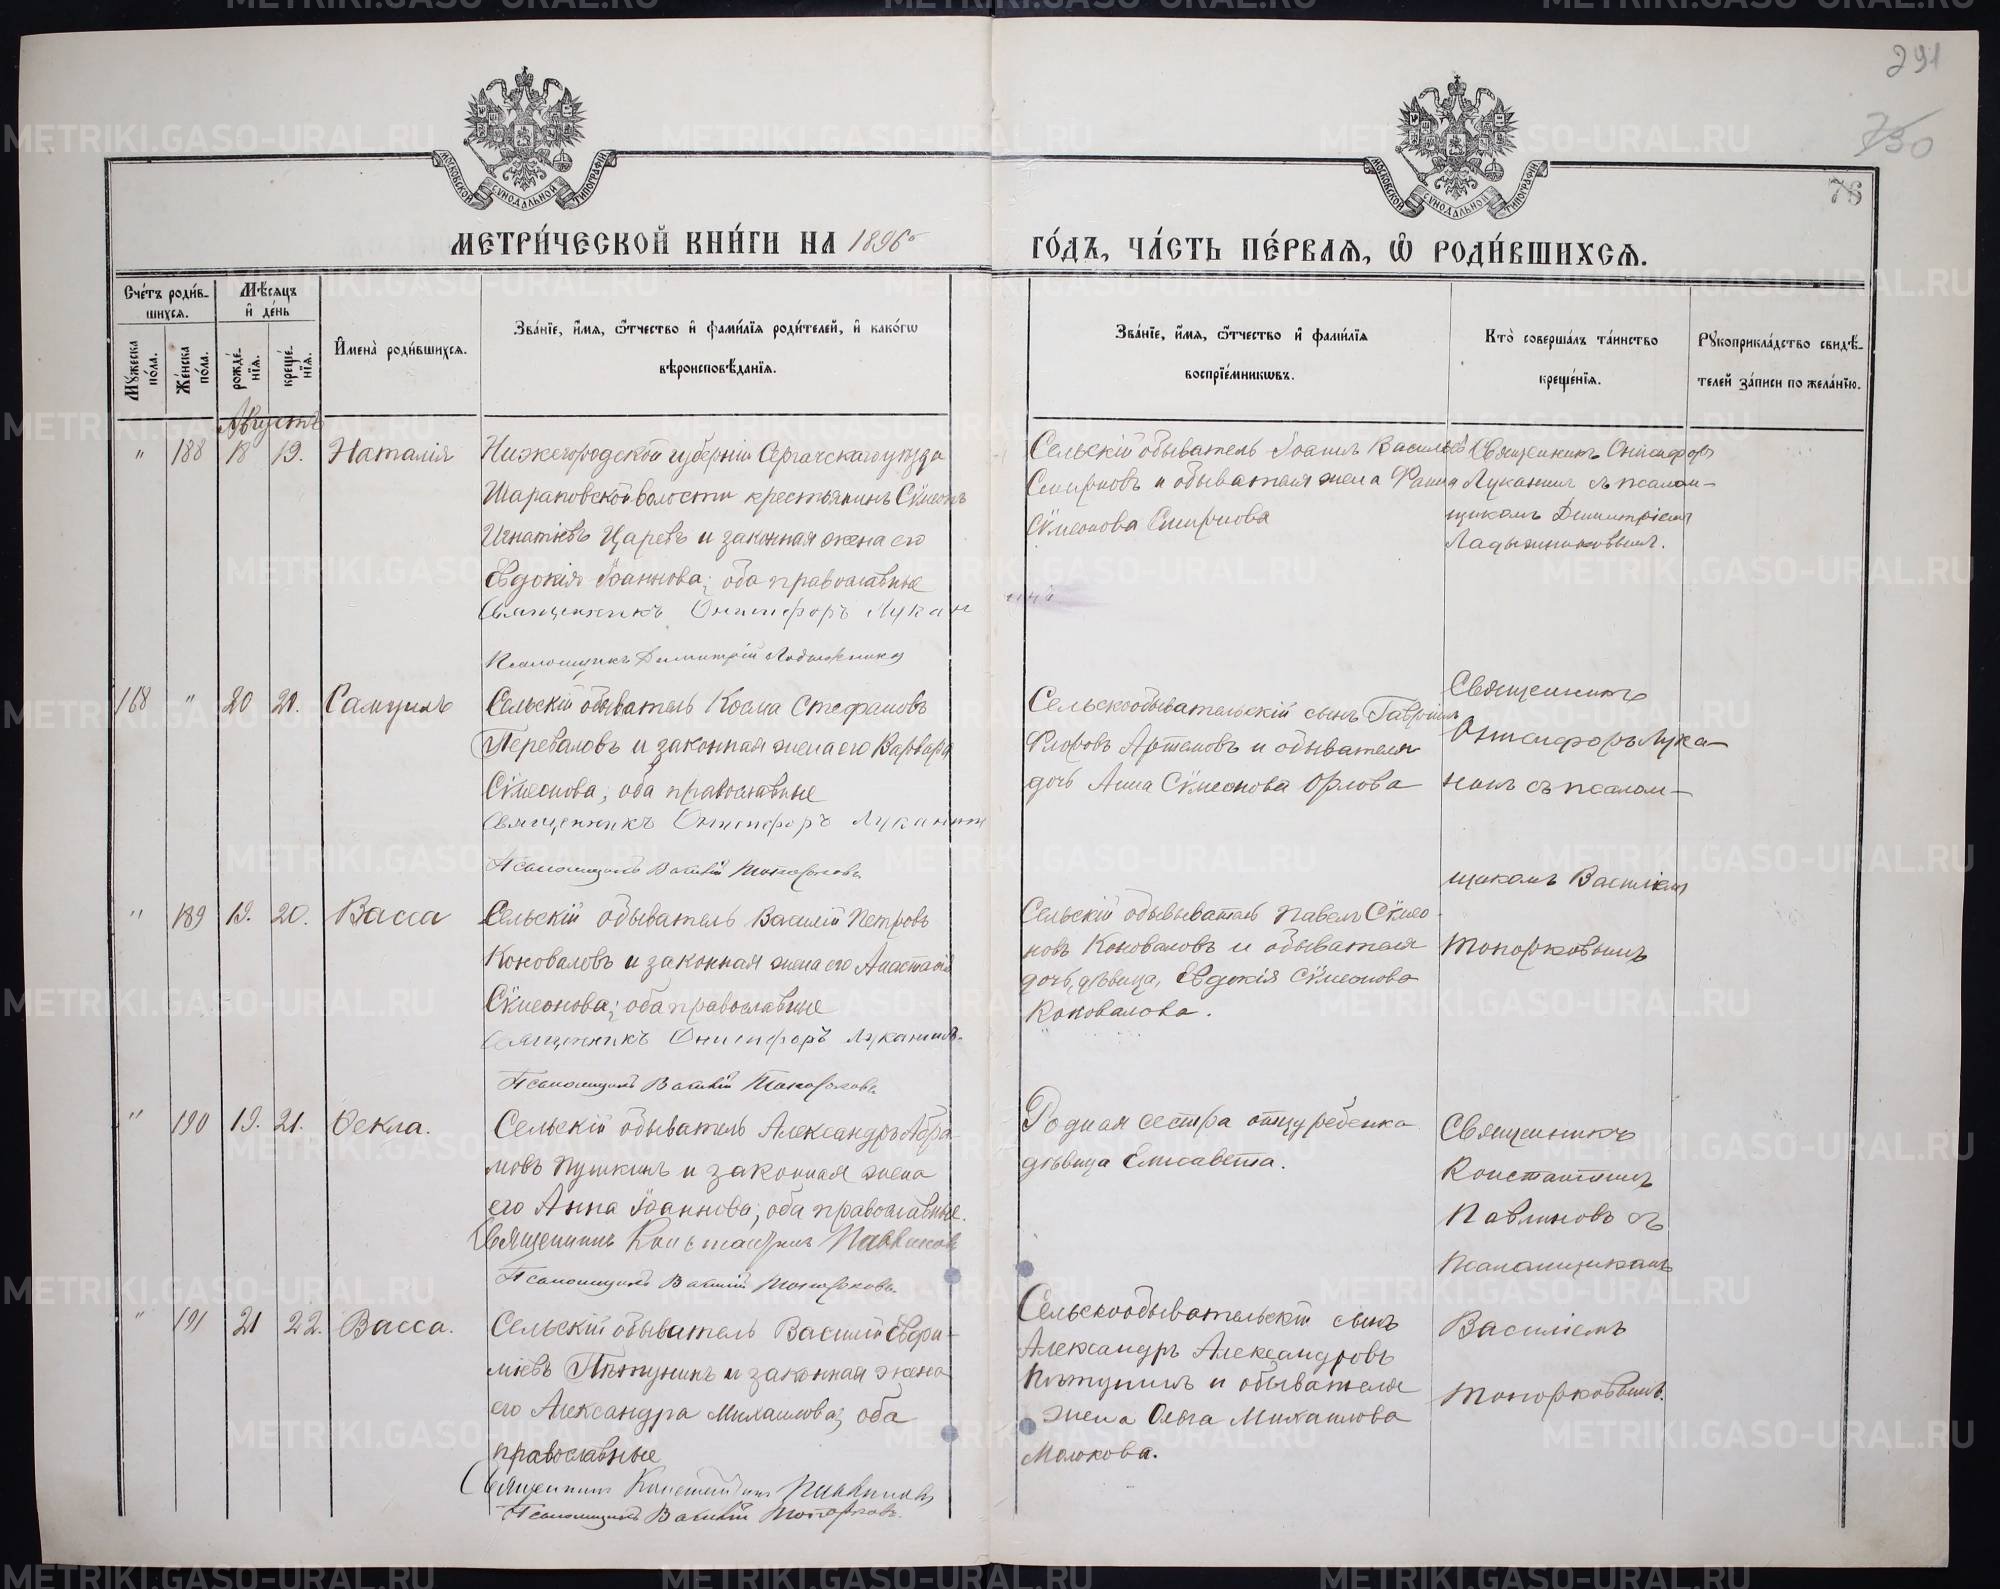 291
750
76
МОСКОВСКОЙ СѴНОДАЛЬНОЙ ТИПОГРАФІИ
МОСКОВСКОЙ СѴНОДАЛЬНОЙ ТИПОГРАФІИ
МЕТРИ́ЧЕСКОЙ КНИ́ГИ НА 1896й
ГО́ДЪ, ЧА́СТЬ ПЕ́РВАЯ, Ѡ҆ РОДИ́ВШИХСЯ.
Сче́тъ роди́в-
шихся.
Мѣ́сяцъ
и҆ де́нь
Му́жеска по́ла.
Же́нска по́ла.
рожде́нїя.
креще́нїя.
И҆мена̀ роди́вшихся.
Зва́нїе, и҆́мя, ѻ҆́тчество и҆ фами́лїя роди́телей, и҆ како́гѡ
вѣроисповѣ́данїя.
Зва́нїе, и҆́мя, ѻ҆́тчество и҆ фами́лїя
воспрїе́мникѡвъ.
Кто̀ соверша́лъ та́инство
креще́нїя.
Рукоприкла́дство свидѣ́-
телей за́писи по жела́нїю.
Августъ
" 188 18 19. Наталія
Нижегородской губерніи Сергачскаго уѣзда
Шараповской волости крестьянинъ Сѵмеонъ
Игнатіевъ Царевъ и законная жена его
Евдокія Іоаннова; оба православные
Священникъ Онисифоръ Лукан
инъ
Псаломщикъ Димитрій Ладыжников
Сельскій обыватель Іоаннъ Васильевъ
Смирновъ и обывателя жена Фаина
Сѵмеонова Смирнова
Священникъ Онисифоръ
Луканинъ съ псалом-
щикомъ Димитріемъ
Ладыжниковымъ.
168 " 20 21. Самуилъ
Сельскій обыватель Косма Стефановъ
Переваловъ и законная жена его Варвара
Сѵмеонова; оба православные
Священникъ Онисифоръ Луканинъ
Псаломщикъ Василій Топорковъ
Сельскообывательскій сынъ Гавріилъ
Флоровъ Артемовъ и обывателя
дочь Анна Сѵмеонова Орлова
Священникъ
Онисифоръ Лука-
нинъ съ псалом-
щикомъ Василіемъ
Топорковымъ
" 189 19. 20. Васса
Сельскій обыватель Василій Петровъ
Коноваловъ и законная жена его Анастасія
Сѵмеонова; оба православные
Священникъ Онисифоръ Луканинъ.
Псаломщикъ Василій Топорковъ
Сельскій обывыватель Павелъ Сѵмео-
новъ Коноваловъ и обывателя
дочь, дѣвица, Евдокія Сѵмеонова
Коновалова.
" 190 19. 21. Ѳекла.
Сельскій обыватель Александръ Абра-
мовъ Пушкинъ и законная жена
его Анна Іоаннова; оба православные.
Священникъ Константинъ Павлиновъ
Псаломщикъ Василій Топорковъ.
Родная сестра отцу ребенка
дѣвица Елисавета.
Священникъ
Константинъ
Павлиновъ съ
Псаломщикомъ
Василіемъ
Топорковымъ.
" 191 21 22. Васса.
Сельскій обыватель Василій Евфи-
міевъ Пѣтунинъ и законная жена
его Александра Михаилова; оба
православные
Священникъ Константинъ Павлиновъ
Псаломщикъ Василій Топорковъ.
Сельскообывательскій сынъ
Александръ Александровъ
Пѣтунинъ и обывателя
жена Ольга Михаилова
Молокова.
METRIKI.GASO-URAL.RU